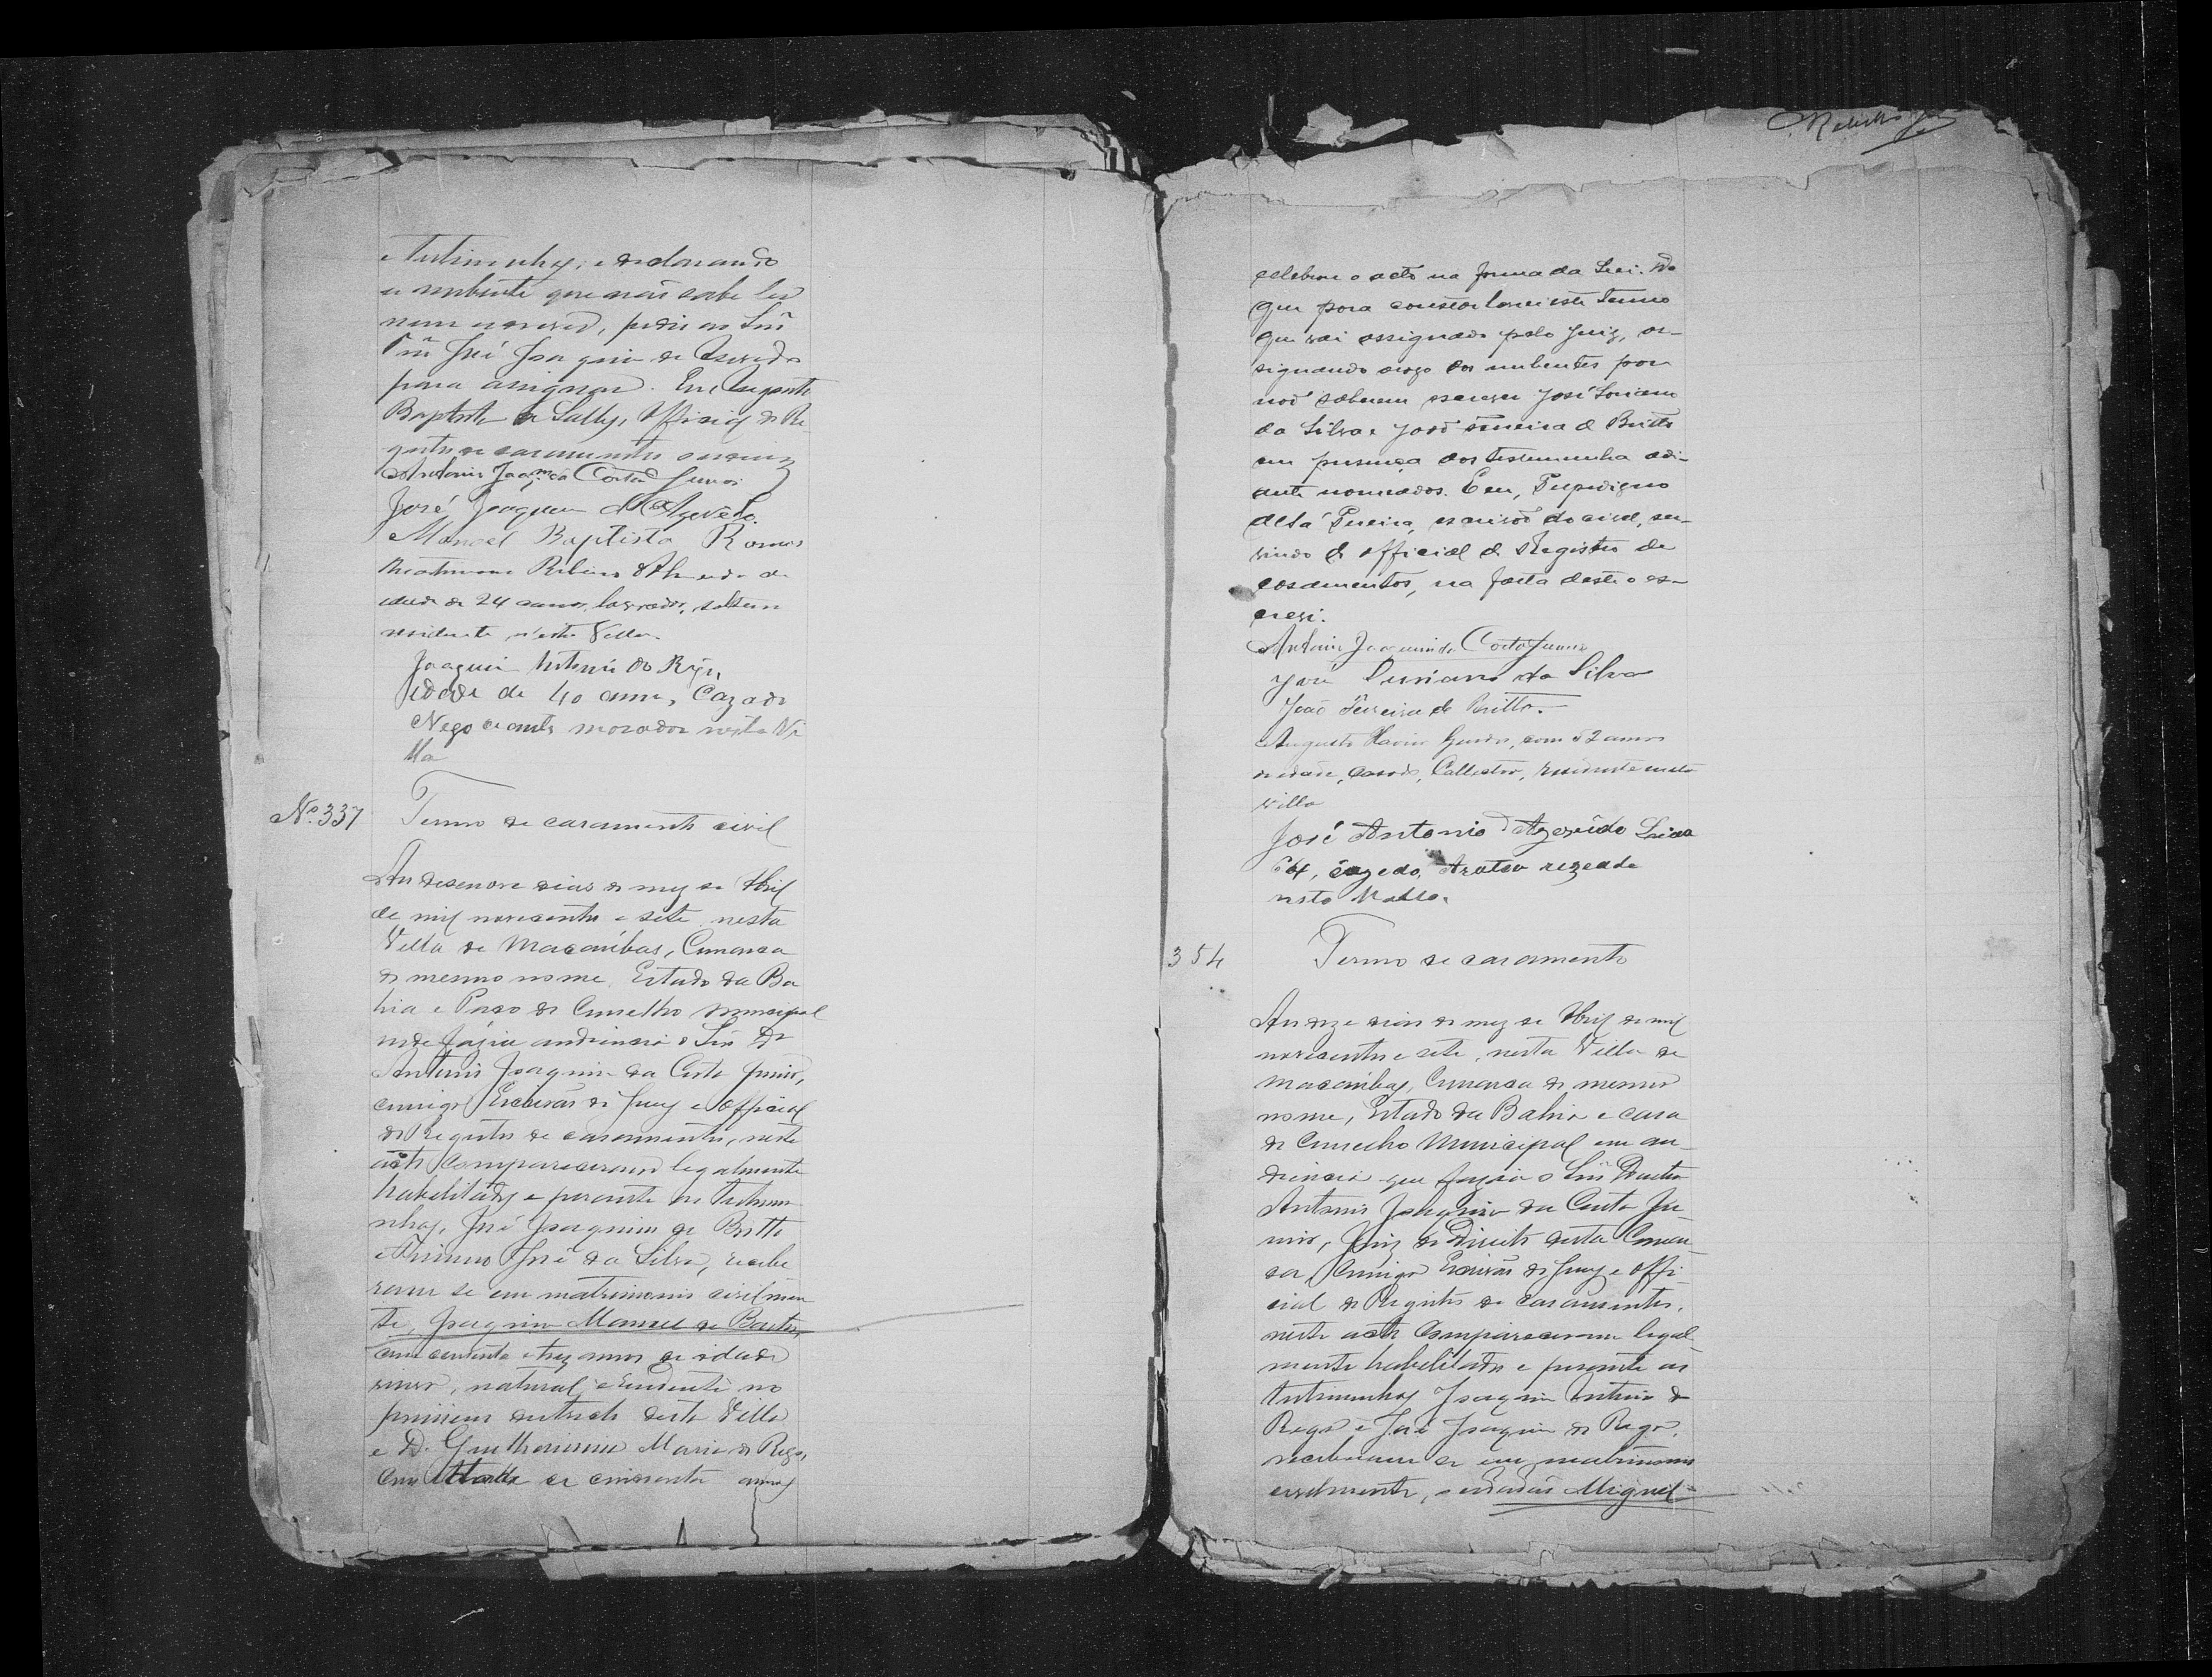 e Testimunhas, e declarando
a nubente que não sabe ler
nem escrever, pediu ao Snr̃
José Joaquim de Azevedo
para assignar. Eu, Augusto
Baptista de Salles, Official do Re-
gistro de casamentos escrevi
Antonio Joaqm da Costa Junior
José Joaquim d'Azevêdo.
Manoel Baptista Ramos
idade de 24 annos, lavrador, solteiro
residente n'esta Villa.
Joaquim Antonio do Rego,
idade de 40 annos, Cazado
Negociante morador nesta Vi
lla
No. 337 Termo de casamento civil
Ao desenove dias do mez de Abril
de mil novecentos e sete, nesta
Villa de Macaúbas, Comarca
do mesmo nome, Estado da Ba
hia e Paço do Conselho Municipal
onde fazia audiencia o Snr Dr
Antonio Joaquim da Costa Junior,
comigo Escrivão do Jury e Official
do Registro de casamentos, neste
acto compareceram legalmente
habilitados e perante as testemu
nhas, José Joaquim de Britto
e Firmino José da Silva, recebe
ram se em matrimonio civilmen
te, Joaquim Manoel de Bastos,
com cincoenta e trez annos de idade
viuvo, natural e residente no
primeiro districto desta Villa
e D. Guilhermina Maria do Rego,
com idade de cincoenta annos
celebrou o acto na forma da Lei. Do
que para constar lavrei este termo
que vai assignado pelo Juiz, as-
signando arogo dos nubentes por
não saberem escrever José Soriano
da Silva e João Ferreira de Britto
em presença das testemunha adi-
ante nomeados. E eu, Perpedigno
de Sá Pereira, escrivão do civel, ser-
vindo de official de Registro de
casamentos, na falta deste o es-
crevi.
Antonio Joaquim da Costa Junior
José Suriano da Silva
João Ferreira de Britto.
Augusto Xavier Guedes, com 52 annos
de idade, casado, Collector, residente nesta
villa
José Antonio d'Azevêdo
64, cazado, residente
nesta Villa.
354 Termo de casamento
Ao doze dias do mez de Abril de mil
novecentos e sete, nesta Villa de
Macaúbas, Comarca do mesmo
nome, Estado da Bahia e casa
do Conselho Municipal em au-
diencia que fazia o Snr Doutor
Antonio Joaquim da Costa Ju-
nior, Juiz de Direito desta Comar-
ca, comigo Escrivão do Jury e offi-
cial do Registro de casamentos,
neste acto compareceram legal-
mente habilitados e perante as
testimunhas Joaquim Antonio do
Rego e José Joaquim do Rego,
receberam se em matrimonio
civilmente, o cidadão Miguel